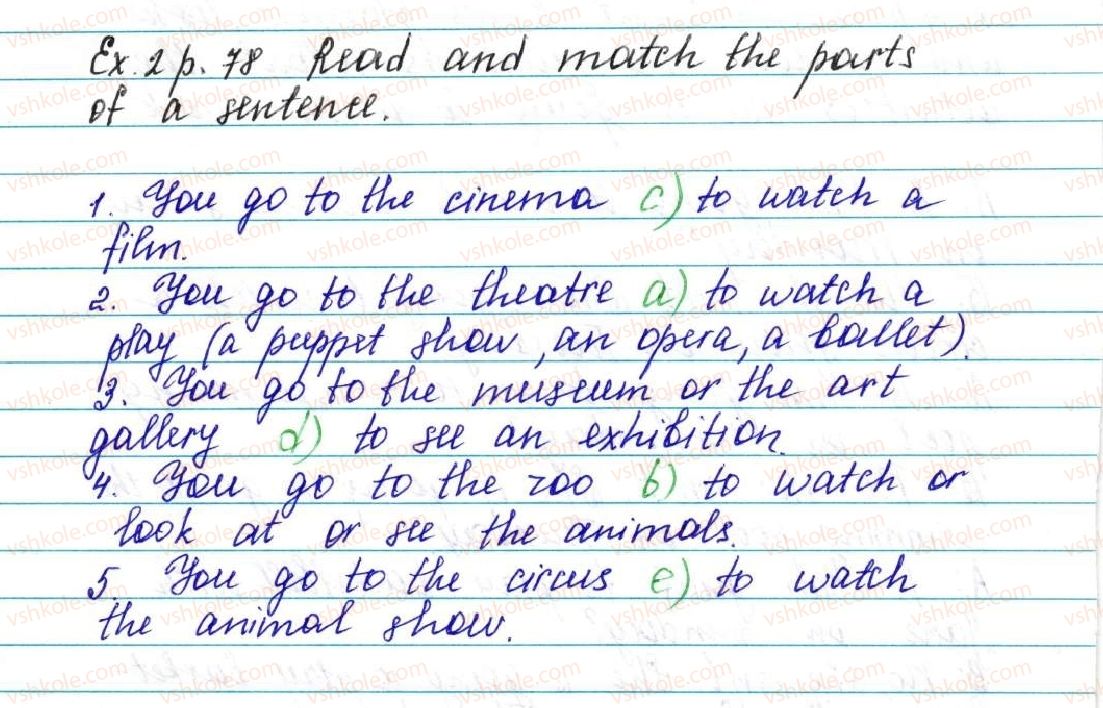 Ex. 2 p. 78 Read and match the parts
of a sentence.
1. You go to the cinema c) to watch a
film.
2. You go to the theatre a) to watch a
play (a puppet show, an opera, a ballet).
3. You go to the museum or the art
gallery d) to see an exhibition.
4. You go to the zoo b) to watch or
look at or see the animals.
5. You go to the circus e) to watch
the animal show.
vshkole.com